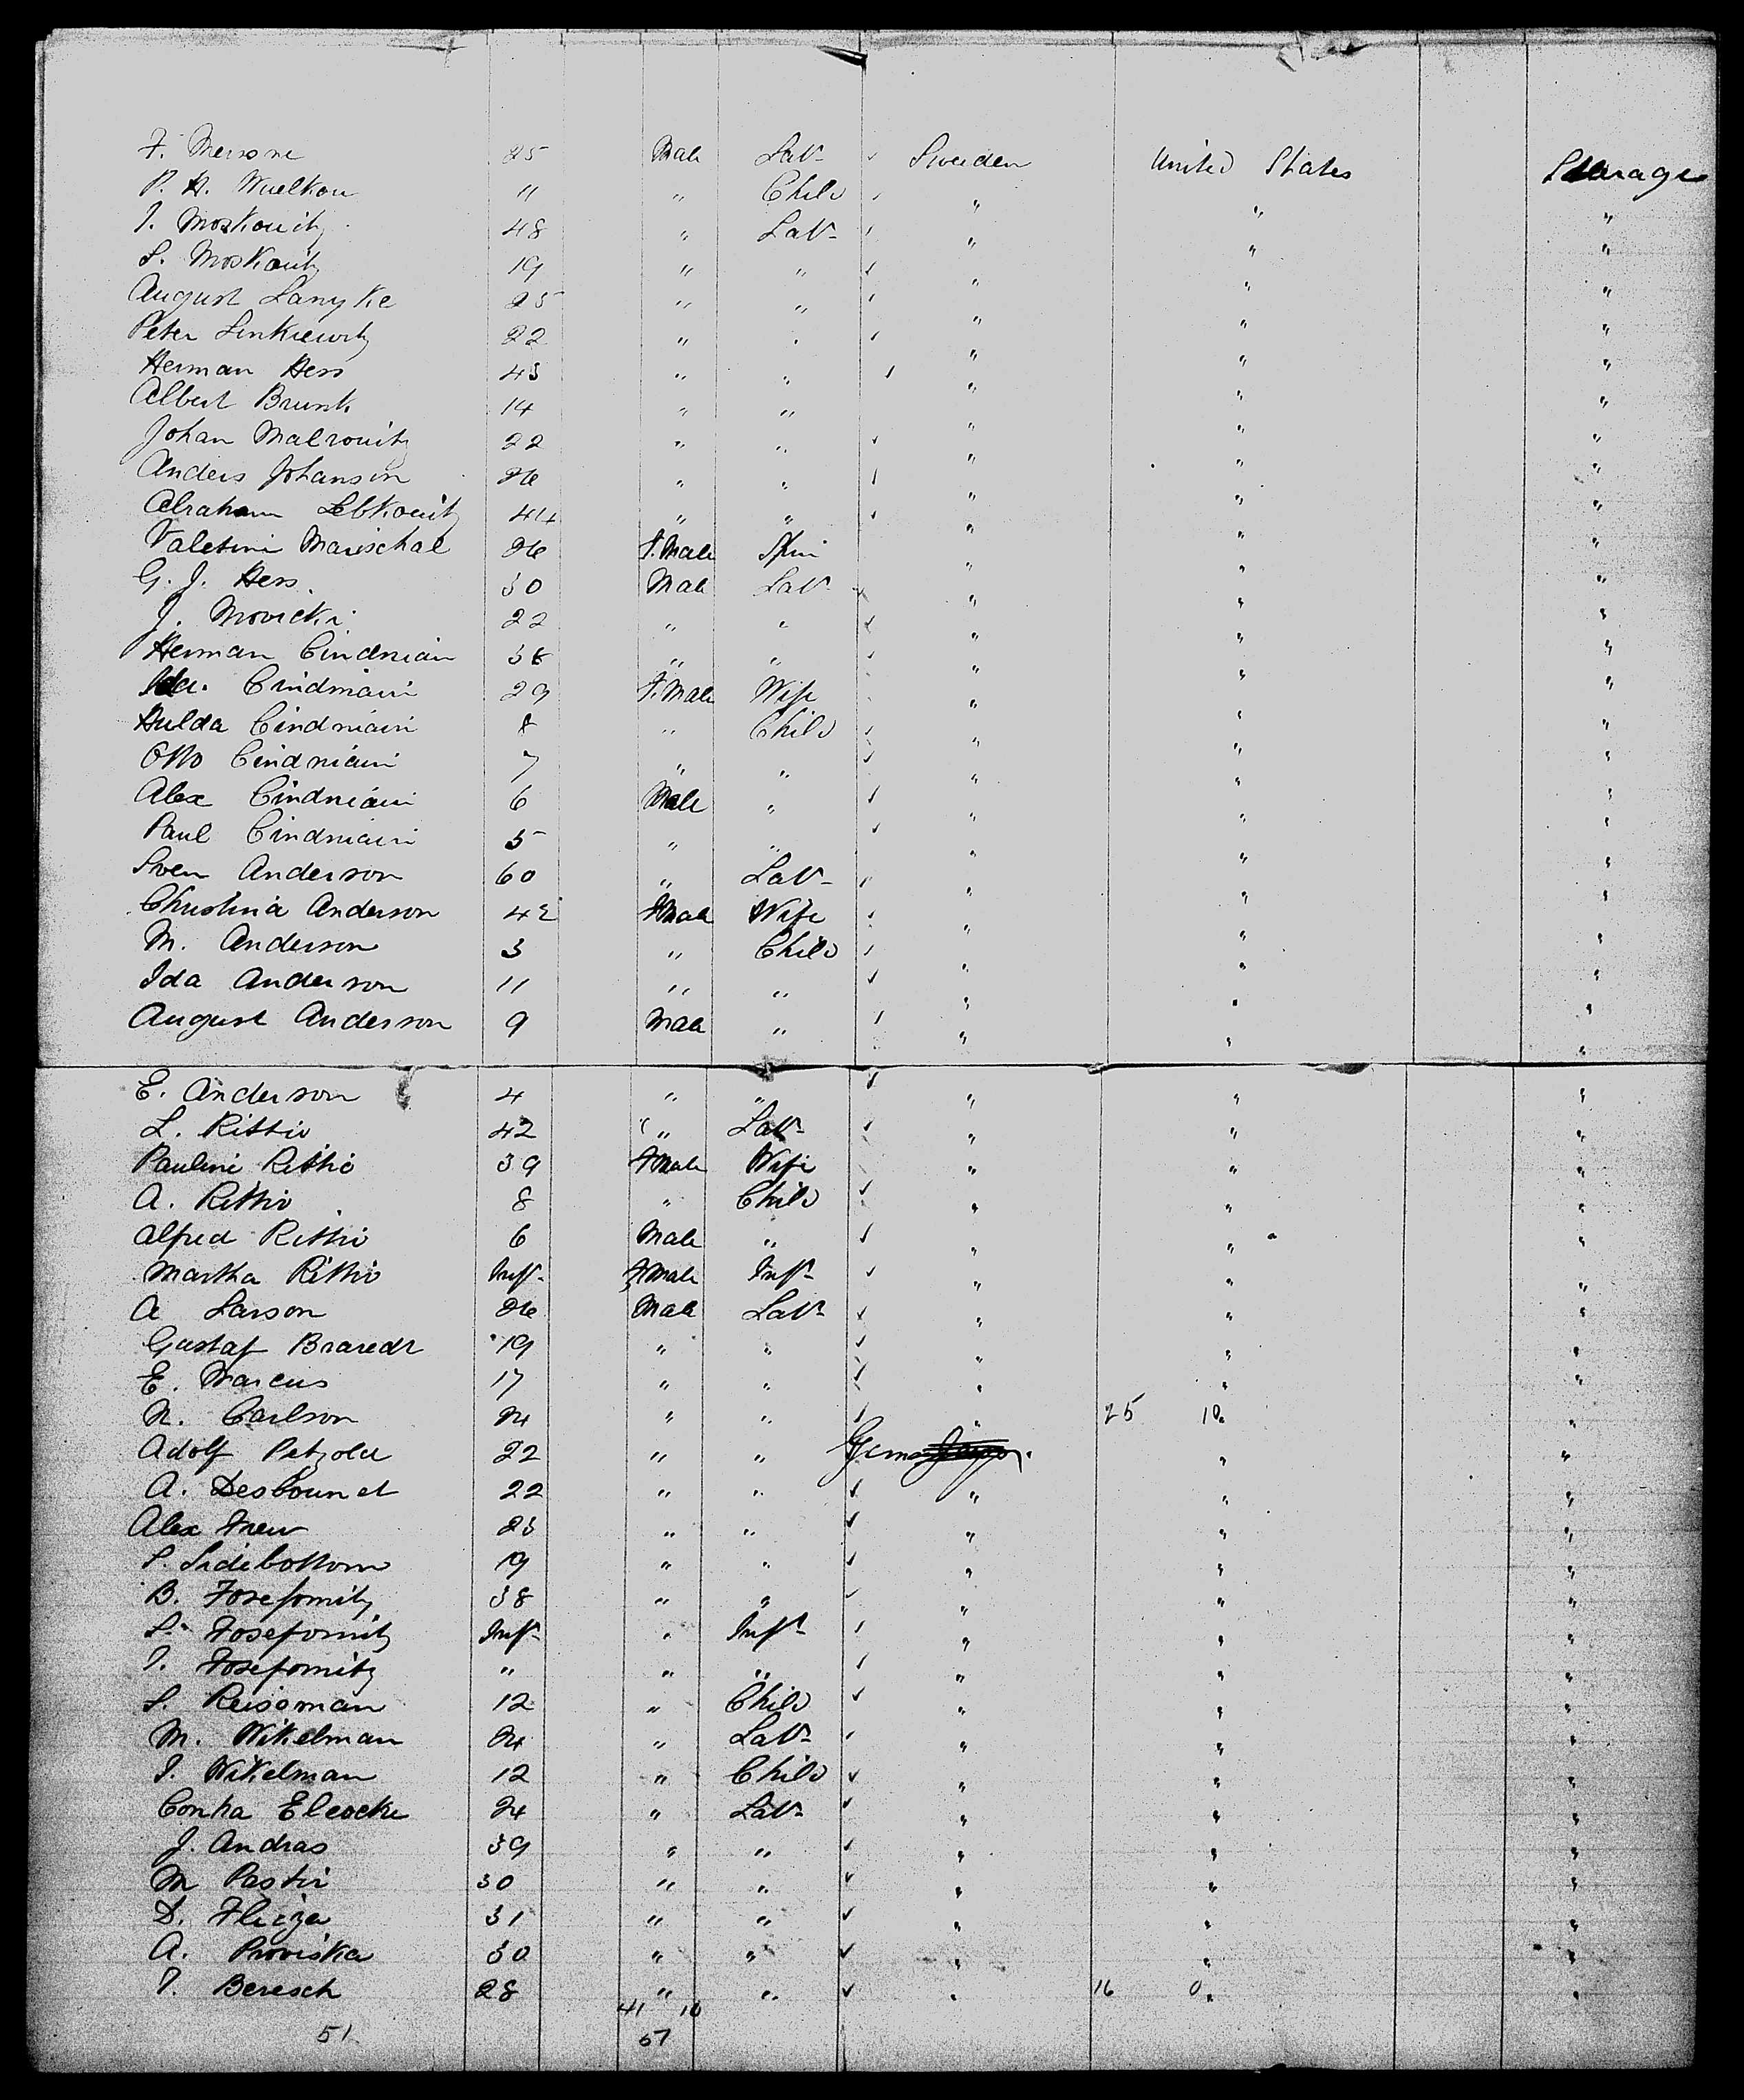 F. Merrone 25 Male Lab- ✓ Sweden United States Stearage
P. A. Wuelkou 11 " Child " " "
I. Moskouitz 48 " Lab- " " "
S. Moskouitz 19 " " ✓ " " "
August Lanyke 25 " " " " "
Peter Linkiewitz 22 " " ✓ " " "
Herman Hess 43 " " ✓ " " "
Albert Brunk 14 " " " " "
Johan Malrouitz 22 " " ✓ " " "
Anders Johanson 26 " " ✓ " " "
Abraham Lebkouitz 44 " " ✓ " " "
Valesini Marischal 26 F.Male Spin " " "
G. J. Hess 30 Male Lab- " " "
J. Movicki 22 " " ✓ " " "
Herman Cindniain 38 " " ✓ " " "
Ida. Cindniain 29 F.Male Wife " " "
Hulda Cindniain 8 " Child " " "
Otto Cindniain 7 " " ✓ " " "
Alex Cindniain 6 Male " ✓ " " "
Paul Cindniain 5 " " ✓ " " "
Sven Anderson 60 " Lab- " " "
Christina Anderson 42 FMale Wife ✓ " " "
M. Anderson 3 " Child " " "
Ida Anderson 11 " " ✓ " " "
August Anderson 9 Male " " " "
E. Anderson 4 " " ✓ " " "
L. Rittiv 42 " Lab- ✓ " " "
Pauline Rittiv 39 FMale Wife " " "
A. Rittiv 8 " Child ✓ " " "
Alfred Rittiv 6 Male " ✓ " " "
Martha Rittiv Inft- FMale Inft- ✓ " " "
A Larson 26 Male Lab- ✓ " " "
Gustaf Braredt 19 " " ✓ " " "
E. Marcus 17 " " ✓ " " "
N. Carlson 24 " " ✓ " 25 10 " "
Adolf Petzold 22 " " " "
A. Desbounet 22 " " ✓ " " "
Alex Frew 23 " " ✓ " " "
P. Sidebottom 19 " " ✓ " " "
B. Josefomitz 38 " " ✓ " " "
S. Josefomitz Inft- " Inft- " " "
I. Josefomitz " " " ✓ " " "
S. Reissman 12 " Child ✓ " " "
M. Wikelman 24 " Lab- " " "
I. Wikelman 12 " Child ✓ " " "
Contra Elcocke 24 " Lab- ✓ " " "
J. Andras 39 " " ✓ " " "
M Pastir 30 " " ✓ " " "
D. Fliega 31 " " ✓ " " "
A. Proviska 30 " " ✓ " " "
T. Beresch 28 " " ✓ " 16 0 " "
41 16
51 57